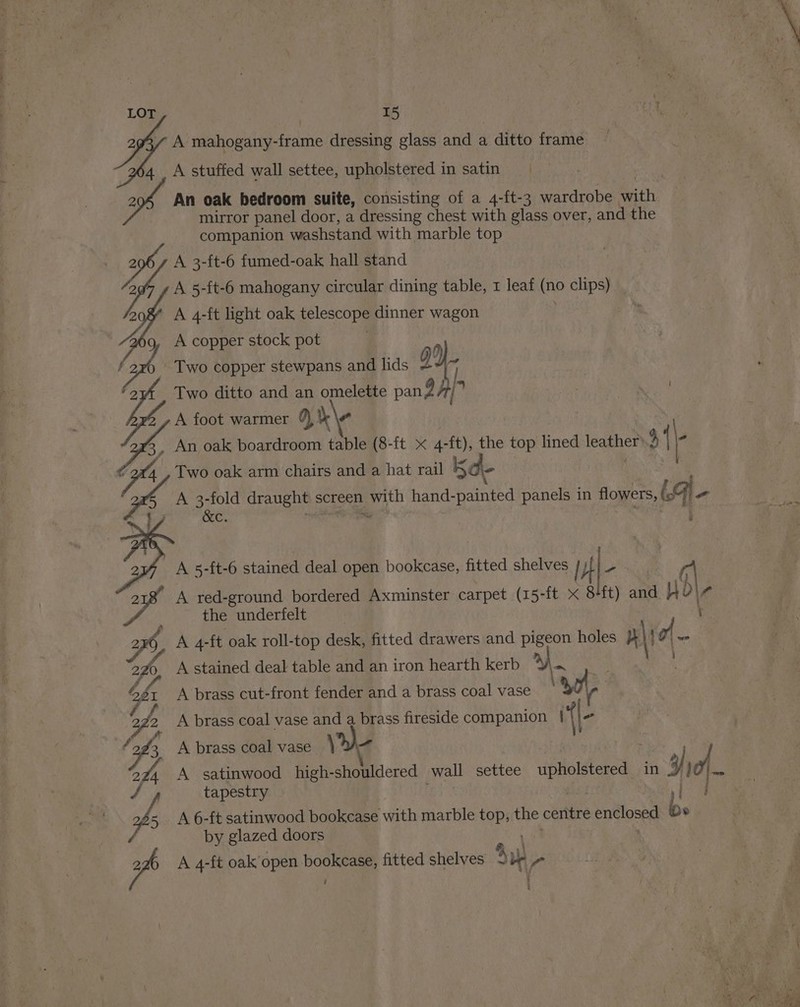 LOT 15
203 A mahogany-frame dressing glass and a ditto frame
204 A stuffed wall settee, upholstered in satin
205 An oak bedroom suite, consisting of a 4-ft-3 wardrobe with
mirror panel door, a dressing chest with glass over, and the
companion washstand with marble top
206 A 3-ft-6 fumed-oak hall stand
207 A 5-ft-6 mahogany circular dining table, 1 leaf (no clips)
208 A 4-ft light oak telescope dinner wagon
209 A copper stock pot
210 Two copper stewpans and lids
211 Two ditto and an omelette pan
212 A foot warmer
213 An oak boardroom table (8-ft × 4-ft), the top lined leather
214 Two oak arm chairs and a hat rail
215 A 3-fold draught screen with hand-painted panels in flowers,
&c.
216
217 A 5-ft-6 stained deal open bookcase, fitted shelves
218 A red-ground bordered Axminster carpet (15-ft × 8-ft) and
the underfelt
219 A 4-ft oak roll-top desk, fitted drawers and pigeon holes
220 A stained deal table and an iron hearth kerb
221 A brass cut-front fender and a brass coal vase
222 A brass coal vase and a brass fireside companion
223 A brass coal vase
224 A satinwood high-shouldered wall settee upholstered in
tapestry
225 A 6-ft satinwood bookcase with marble top, the centre enclosed
by glazed doors
226 A 4-ft oak open bookcase, fitted shelves